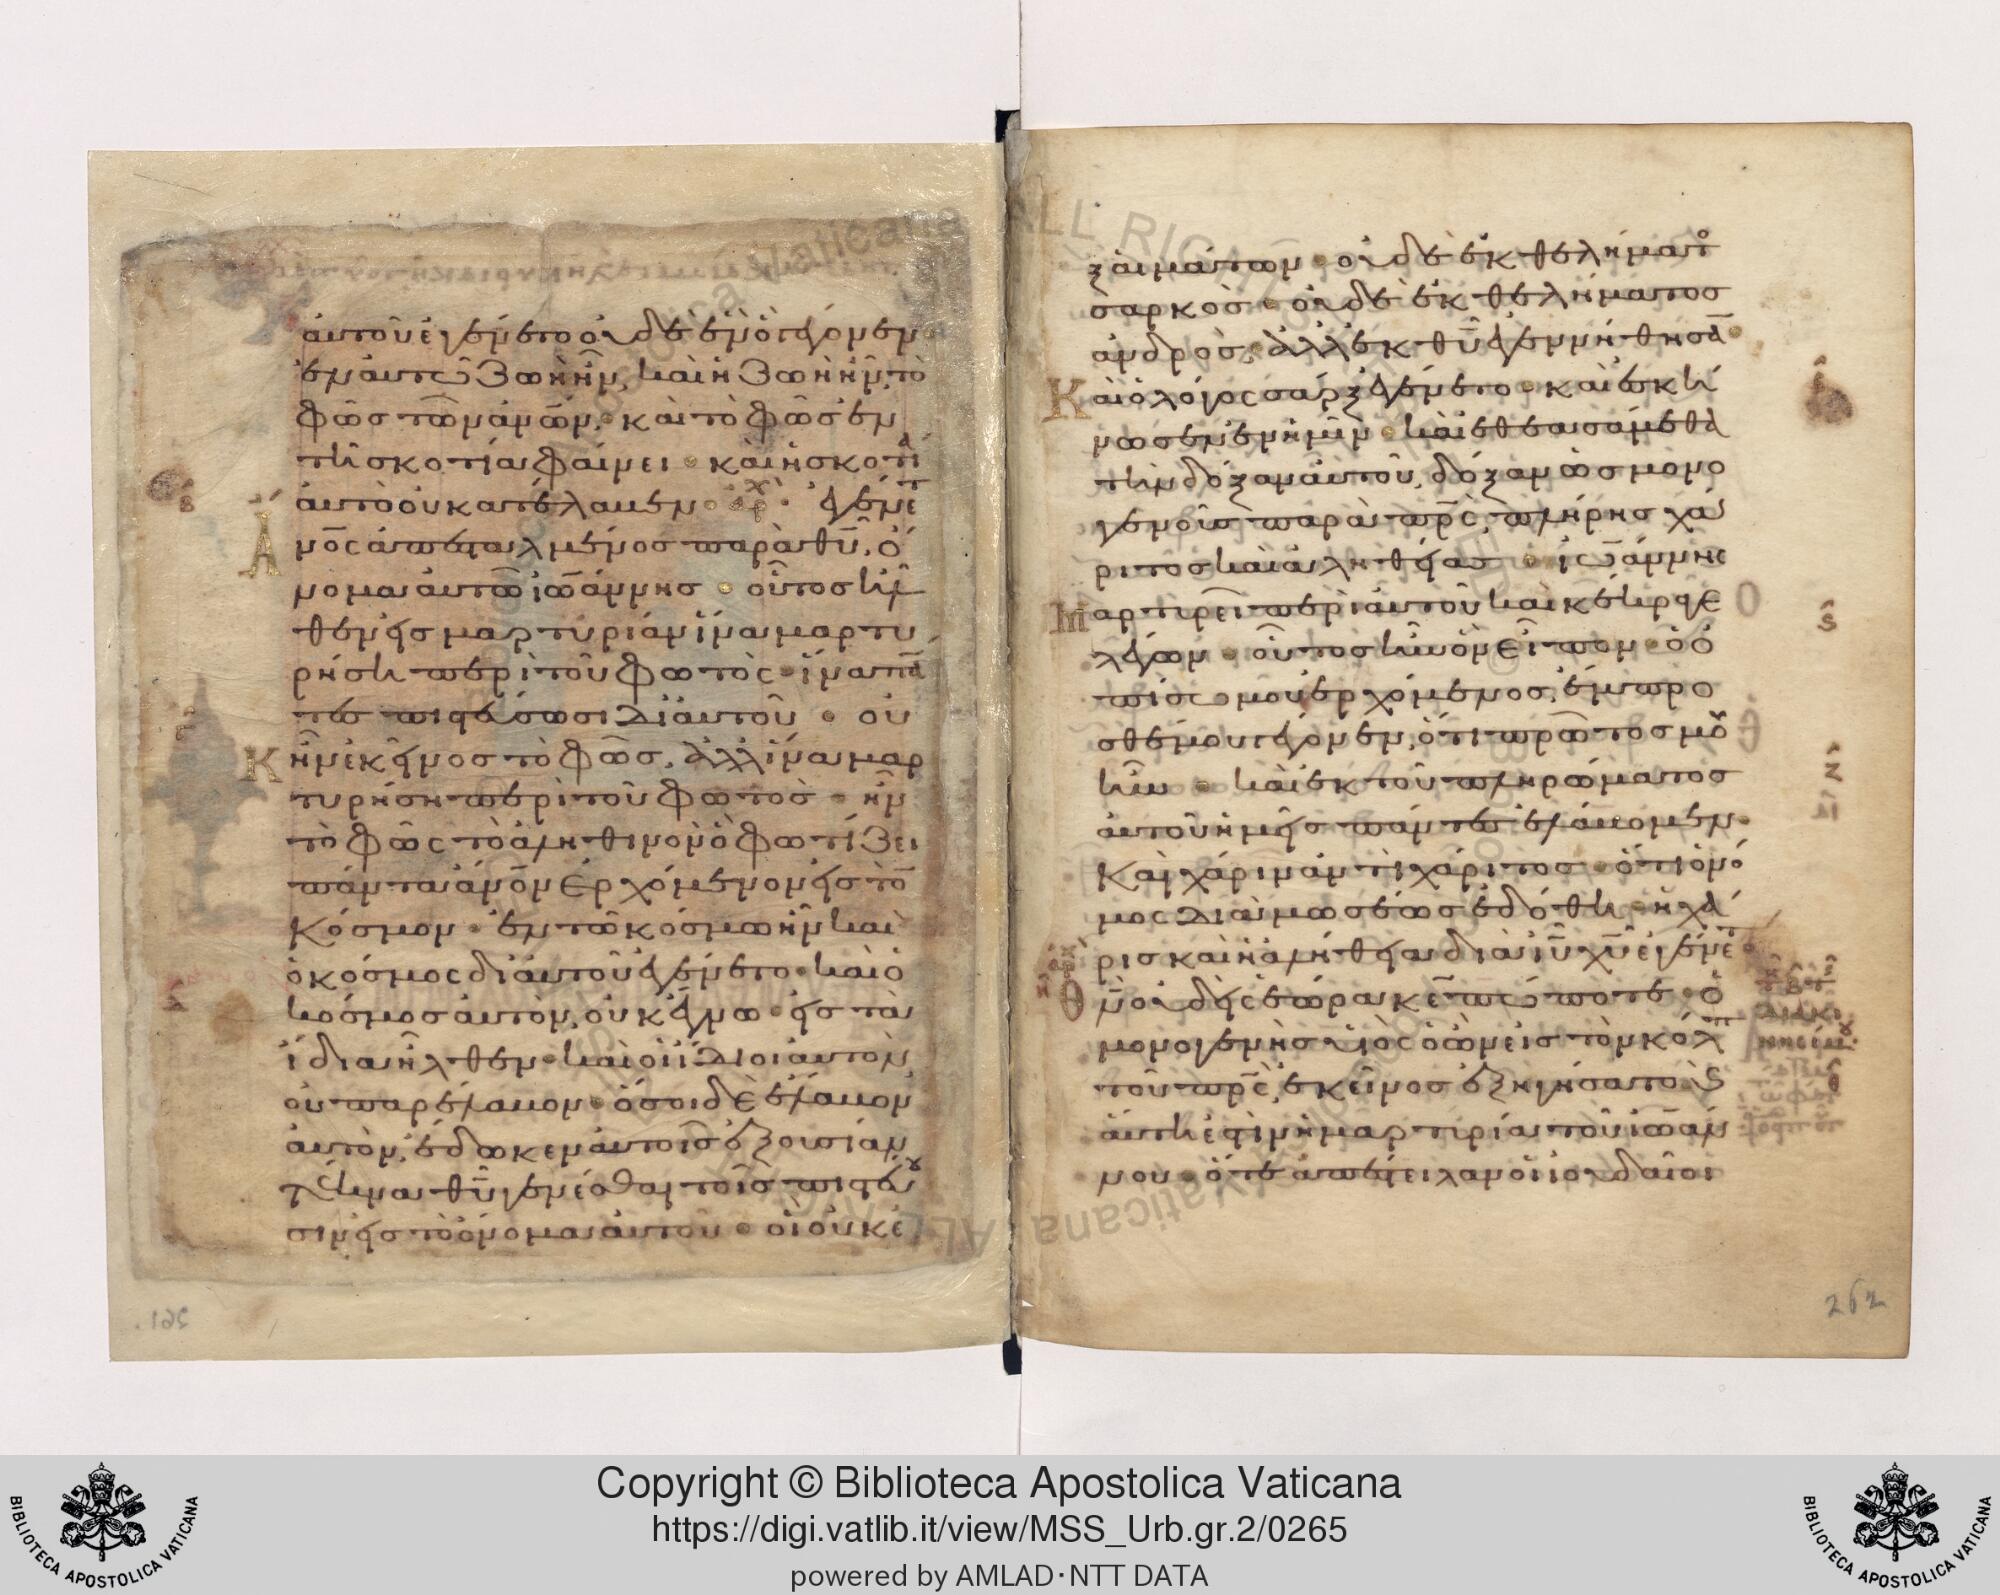 αὐτοῦ ἐγένετο οὐδὲ ἓν ὃ γέγονεν·
ἐν αὐτῷ ζωὴ ἦν, καὶ ἡ ζωὴ ἦν, τὸ
φῶς τῶν ἀνων̅, καὶ τὸ φῶς ἐν
τῆ σκοτία φαίνει· καὶ ἡ σκοτί
αὐτὸ οὐ κατέλαβεν· ἀρχ· ἐγένετ
Ἀνο̅ς ἀπεσταλμένος παρὰ θυ̅, ὄ
νομα αὐτῶ ἰωάννης· οὗτος ἦλ
θεν εἰς μαρτυρίαν ἵνα μαρτυ
ρήση περὶ τοῦ φωτός· ἵνα πά
τες πιστεύσωσι δι αὐτοῦ· οὐ
Κ ἦν ἐκεῖνος τὸ φῶς, ἀλλ ἵνα μαρ
τυρήση περὶ τοῦ φωτός· ἦν
τὸ φῶς τὸ ἀληθινὸν ὃ φωτίζει
πάντα ἄνον̅ ἐρχόμενον εἰς τὸ
κόσμον· ἐν τῶ κόσμω ἦν καὶ
ὁ κόσμος δι αὐτοῦ ἐγένετο· καὶ ὁ
κόσμος αὐτὸν, οὐκ ἔγνω· εἰς τὰ
ἴδια ἦλθεν· καὶ οἱ ἴδιοι αὐτὸν
οὐ παρέλαβον· ὅσοι δὲ ἔλαβον
αὐτὸν, ἔδωκεν αὐτοῖς ἐξουσίαν
τέκνα θυ̅ γενέσθαι τοῖς πιστεύου
σιν εἰς τὸ ὄνομα αὐτοῦ· οἳ οὐκ ἐ
ξ αἱμάτων· οὐδὲ ἐκ θελήματο
σαρκὸς· οὐδὲ ἐκ θελήματος
ἀνδρὸς, ἀλλ ἐκ θυ̅ ἐγεννήθησα·
Καὶ ὁ λόγος σὰρξ ἐγένετο· καὶ ἐσκή
νωσεν ἐν ἡμῖν· καὶ ἐθεασάμεθα
τὴν δόξαν αὐτοῦ, δόξαν ὡς μονο
γενοῦς παρὰ πρ̅ς, πλήρης χά
ριτος καὶ ἀληθείας· ἰωάννης
Μαρτυρεῖ περὶ αὐτοῦ καὶ κέκραγε
λέγων· οὗτος ἦν ὃν εἶπον· ὁ ὀ
πίσω μου ἐρχόμενος, ἔμπρο
σθέν μου γέγονεν, ὅτι πρῶτος μου
ἦν· καὶ ἐκ τοῦ πληρώματος
αὐτοῦ ἡμεῖς πάντες ἐλάβομεν·
καὶ χάριν ἀντὶ χάριτος· ὅτι ὁ νό
μος διὰ μωσέως ἐδόθη· ἡ χά
ρις καὶ ἡ ἀλήθεια διὰ ιυ̅ χυ̅ ἐγένετ
Θν̅ οὐδεὶς ἑώρακεν πώποτε· ὁ
μονογενὴς υἱὸς ὁ ὢν εἰς τὸν κόλπ
τοῦ πρ̅ς, ἐκεῖνος ἐξηγήσατο· κ
αὕτη ἐστὶν ἡ μαρτυρία τοῦ ἰωάν
νου· ὅτε ἀπέστειλαν οἱ ἰουδαῖοι
262
Copyright © Biblioteca Apostolica Vaticana
https://digi.vatlib.it/view/MSS_Urb.gr.2/0265
powered by AMLAD·NTT DATA
BIBLIOTECA APOSTOLICA VATICANA
BIBLIOTECA APOSTOLICA VATICANA